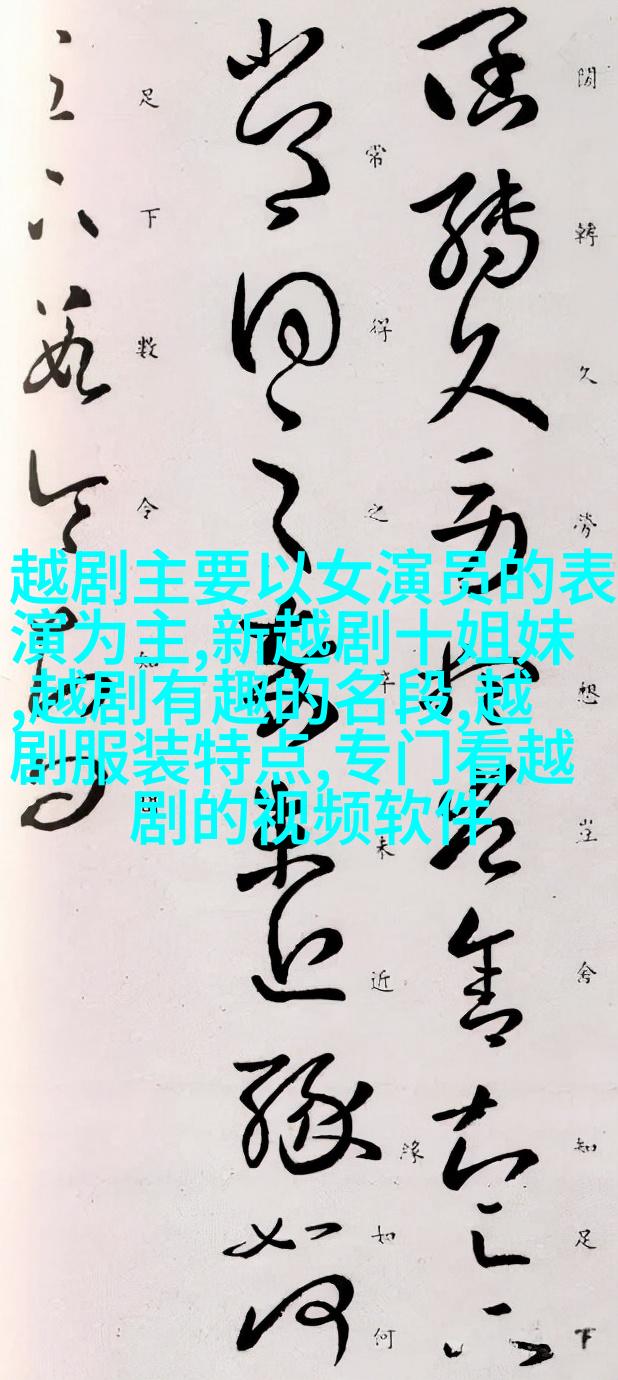 越剧主要以女演员的表
演为主,新越剧十姐妹
,越剧有趣的名段,越
剧服装特点,专门看越
剧的视频软件
闊轉久勞想豈舍知足下
常得之卒未近緣如何
足下数令知問